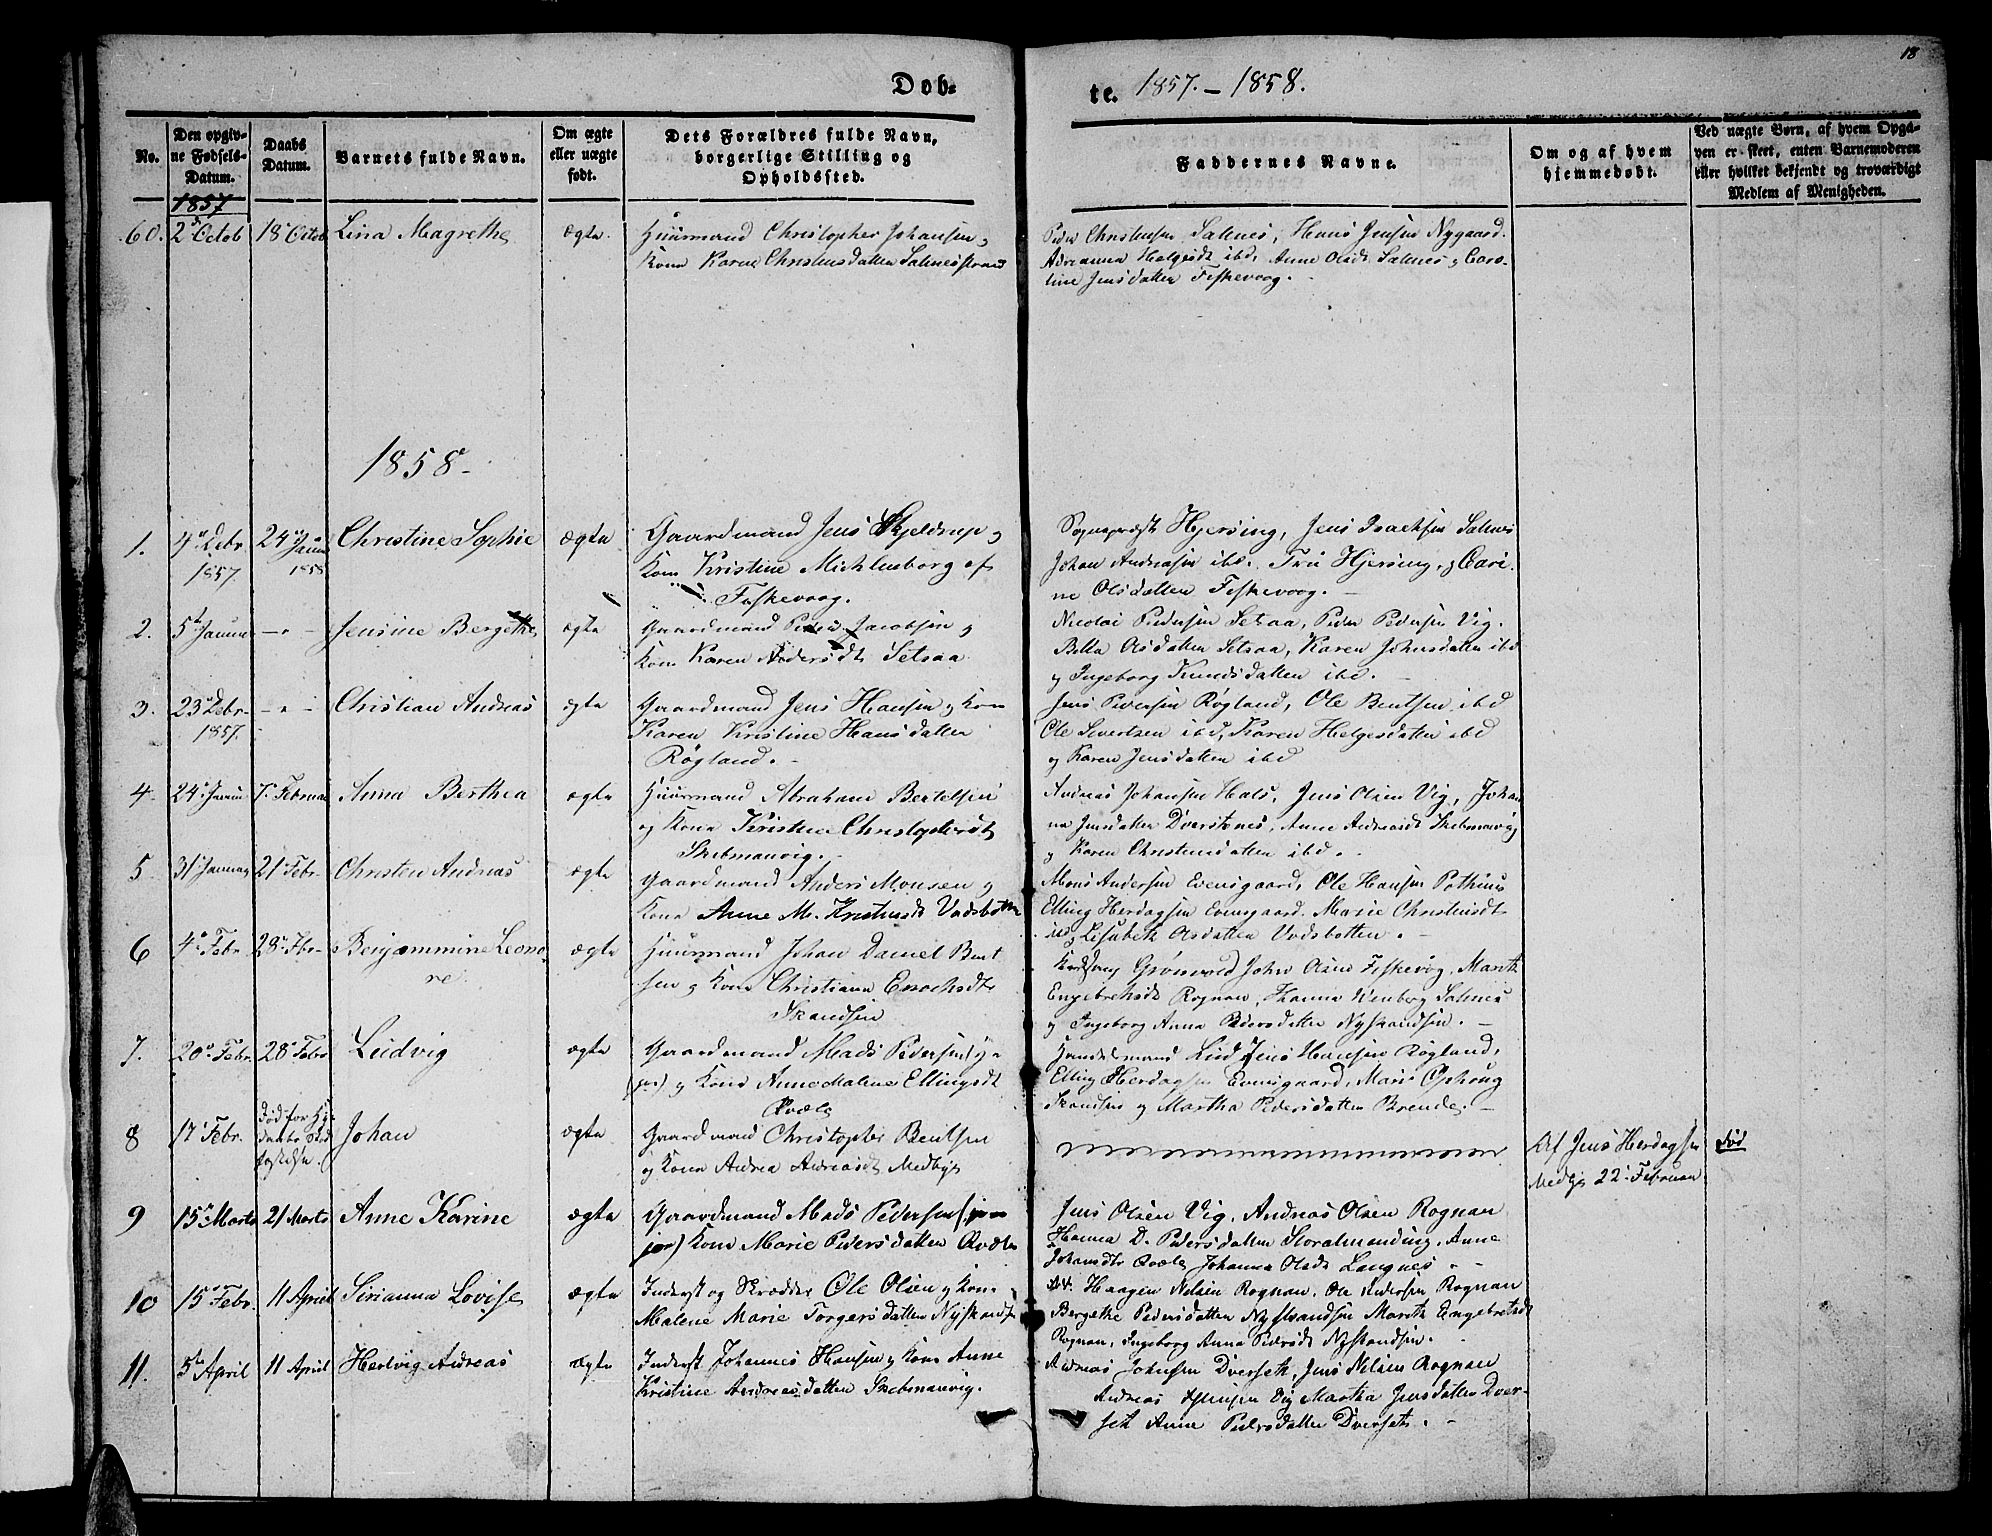 18
Døb-
te. 1857. – 1858.
No.
Den opgiv-
ne Fødsels-
Datum.
Daabs
Datum.
Barnets fulde Navn.
Om ægte
eller uægte
født.
Dets Forældres fulde Navn,
borgerlige Stilling og
Opholdssted.
Faddernes Navne.
Om og af hvem
hjemmedøbt.
Ved uægte Børn, af hvem Opga-
ven er skeet, enten Barnemoderen
eller hvilket bekjendt og troværdigt
Medlem af Menigheden.
1857
60. 2 Octob 18 Octob Lina Magrethe ægte Huusmand Christopher Johansen,
Kone Karen Christensdatter Salnesstrand
Peder Christensen Salnes, Hans Jensen Nygaard.
Adrianna Helgesdt ibd, Anne Olsdt Salnes, Caro-
line Jensdatter Feskevaag.
1858
1. 4 Debr 1857 24 Janu 1858 Christine Sophie ægte Gaardmand Jens Skjeldrup,
Kone Kristine Michlenborg af
Feskevaag.
Sognepræst Hjersing, Jens Isachsen Salnes
Johan Andreasen ibd. Fru Hjersing, Cari-
ne Olsdatter Feskevaag.
2. 5 Januar – " – Jensine Bergethe ægte Gaardmand Peder Jacobsen,
Kone Karen Andersdt Setsaa
Nicolai Pedersen Setsaa, Peder Pedersen Vig.
Olsdatter Setsaa, Karen Johnsdatter ibd
Ingeborg Knudsdatter ibd.
3. 23 Debr 1857 – " – Christian Andreas ægte Gaardmand Jens Hansen, Kone
Karen Kristine Hansdatter
Røgland.
Jens Pedersen Røgland, Ole Bentsen ibd
Ole Sivertsen ibd, Karen Helgesdatter ibd
Karen Jensdatter ibd
4. 24 Janu 7 Februar Anna Berthea ægte Huusmand Abraham Bertelsen
og Kone Kristina Christophersdt
Skebmanvig.
Andreas Johansen Hals, Jens Olsen Vig, Johan
ne Jensdatter, Anne Andreasdt Skebmanvig
Karen Christensdatter ibd.
5. 31 Januar 21 Febr Christen Andreas ægte Gaardmand Anders Monsen,
Kone Anne M. Kristensdt Vadsbotten
Mons Andersen Evensgaard, Ole Hansen Pothus
Elling Herdagsen Evensgaard. Marie Christensdt
Lisabeth Olsdatter Vadsbotten.
6 4 Febr 28 Febr Benjammine Leono-
re. ægte Huusmand Johan Daniel Bent
sen, Kone Christiana Enochsdt
Skandsen
Grønvold John Olsen Feskevog, Marith
Engebretsdt Rognan, Hanna Salnes
Ingeborg Anna Pedersdatter Nyskandsen.
7. 20 Febr 28 Febr Ludvig ægte Gaardmand Mads Pedersen
Kone Anne Malene Ellingsdt
Qvæle
Handelsmand Lund Jens Hansen Røgland,
Elling Herdagsen Evensgaard, Maris
Skandsen og Martha Pedersdatter Brende.
8 17 Febr. Død før
Johan ægte Gaardmand Christopher Bentsen
og Kone Andrea Andreasdt Medby
Af Jens Herdagsen
Medby 22 Februar
Død
9 15 Marts 21 Marts Anne Karine ægte Gaardmand Mads Pedersen
Kone Marie Pedersdatter Qvæle
Jens Olsen Vig, Andreas Olsen Rognan
Hanna D. Pedersdatter Storalmending, Anne
Johansdt Qvæle Johanna Olsdt Langnes
10 15 Febr. 11 April Sirianna Lovise ægte Inderst og Skrædder Ole Olsen, Kone
Malene Marie Torgersdatter Nyskands
Haagen Nelsen Rognan. Ole Pedersen Rognan
Bergethe Pedersdatter Nystrandsen Marith Engebretsdt
Rognan, Ingeborg Anna Pedersdt Nyskandsen.
11. 5 April 11 April Hertvig Andreas ægte Inderst Johannes Hansen, Kone Anne
Kristine Andreasdatter Skebmanvig.
Andreas Johnsen Dverseth, Jens Nelsen Rognan
Andreas Jensen Vig Martha Jensdatter Dver-
seth Anne Pedersdatter Dverseth.